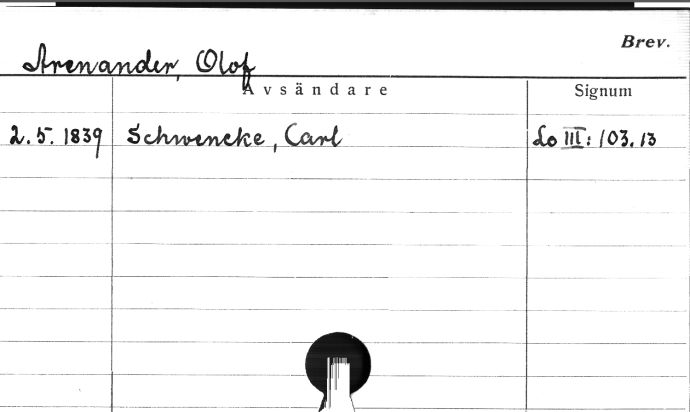 Brev.
Arenander, Olof
Avsändare Signum
2.5.1839 Schwencke, Carl Lo III: 103.13